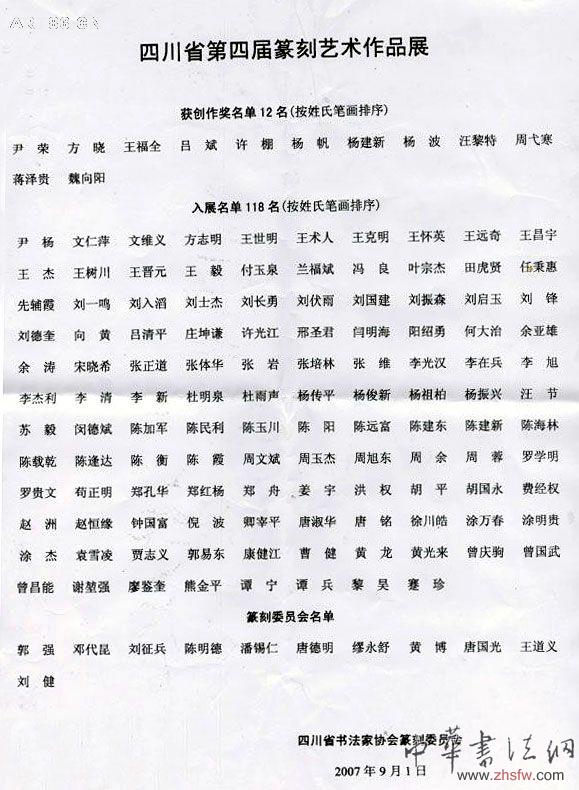 四川省第四届篆刻艺术作品展
获创作奖名单12名(按姓氏笔画排序)
尹荣 方晓 王福全 吕斌 许棚 杨帆 杨建新 杨波 汪黎特 周弋寒
蒋泽贵 魏向阳
入展名单118名(按姓氏笔画排序)
尹杨 文仁萍 文维义 方志明 王世明 王术人 王克明 王怀英 王远奇 王昌宇
王杰 王树川 王晋元 王毅 付玉泉 兰福斌 冯良 叶宗杰 田虎贤 任秉惠
先辅霞 刘一鸣 刘入滔 刘士杰 刘长勇 刘伏雨 刘国建 刘振森 刘启玉 刘锋
刘德奎 向黄 吕清平 庄坤谦 许光江 邢圣君 闫明海 阳绍勇 何大治 余亚雄
余涛 宋晓希 张正道 张体华 张岩 张培林 张维 李光汉 李在兵 李旭
李杰利 李清 李新 杜明泉 杜雨声 杨传平 杨俊新 杨祖柏 杨振兴 汪节
苏毅 闵德斌 陈加军 陈民利 陈玉川 陈阳 陈远富 陈建东 陈建新 陈海林
陈载乾 陈逢达 陈衡 陈霞 周文斌 周玉杰 周旭东 周余 周蓉 罗学明
罗贵文 苟正明 郑孔华 郑红杨 郑舟 姜宇 洪权 胡平 胡国永 费经权
赵洲 赵恒缘 钟国富 倪波 卿宰平 唐淑华 唐铭 徐川皓 涂万春 涂明贵
涂杰 袁雪凌 贾志义 郭易东 康健江 曹健 黄龙 黄光来 曾庆驹 曾国武
曾昌能 谢堃强 廖鉴奎 熊金平 谭宁 谭兵 黎昊 蹇珍
篆刻委员会名单
郭强 邓代昆 刘征兵 陈明德 潘锡仁 唐德明 缪永舒 黄博 唐国光 王道义
刘健
四川省书法家协会篆刻委员会
2007年9月1日
中华书法网
www.zhsfw.com